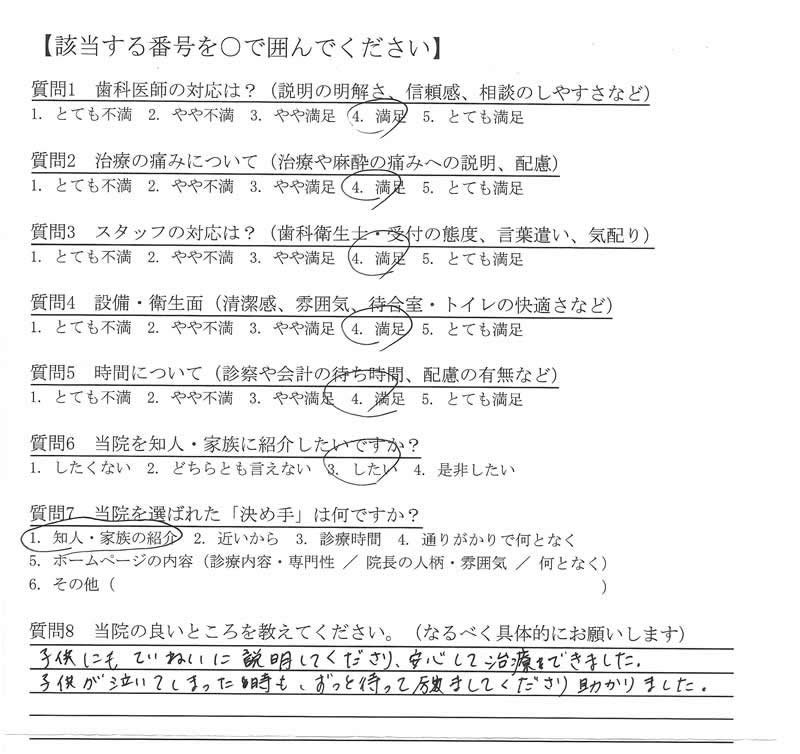 【該当する番号を○で囲んでください】
質問1 歯科医師の対応は？（説明の明解さ、信頼感、相談のしやすさなど）
1. とても不満 2. やや不満 3. やや満足 4. 満足 5. とても満足
質問2 治療の痛みについて（治療や麻酔の痛みへの説明、配慮）
1. とても不満 2. やや不満 3. やや満足 4. 満足 5. とても満足
質問3 スタッフの対応は？（歯科衛生士・受付の態度、言葉遣い、気配り）
1. とても不満 2. やや不満 3. やや満足 4. 満足 5. とても満足
質問4 設備・衛生面（清潔感、雰囲気、待合室・トイレの快適さなど）
1. とても不満 2. やや不満 3. やや満足 4. 満足 5. とても満足
質問5 時間について（診察や会計の待ち時間、配慮の有無など）
1. とても不満 2. やや不満 3. やや満足 4. 満足 5. とても満足
質問6 当院を知人・家族に紹介したいですか？
1. したくない 2. どちらとも言えない 3. したい 4. 是非したい
質問7 当院を選ばれた「決め手」は何ですか？
1. 知人・家族の紹介 2. 近いから 3. 診療時間 4. 通りがかりで何となく
5. ホームページの内容（診療内容・専門性 ／ 院長の人柄・雰囲気 ／ 何となく）
6. その他（ ）
質問8 当院の良いところを教えてください。（なるべく具体的にお願いします）
子供にもていねいに説明してくださり、安心して治療をできました。
子供が泣いてしまった時も、ずっと待って励ましてくださり助かりました。